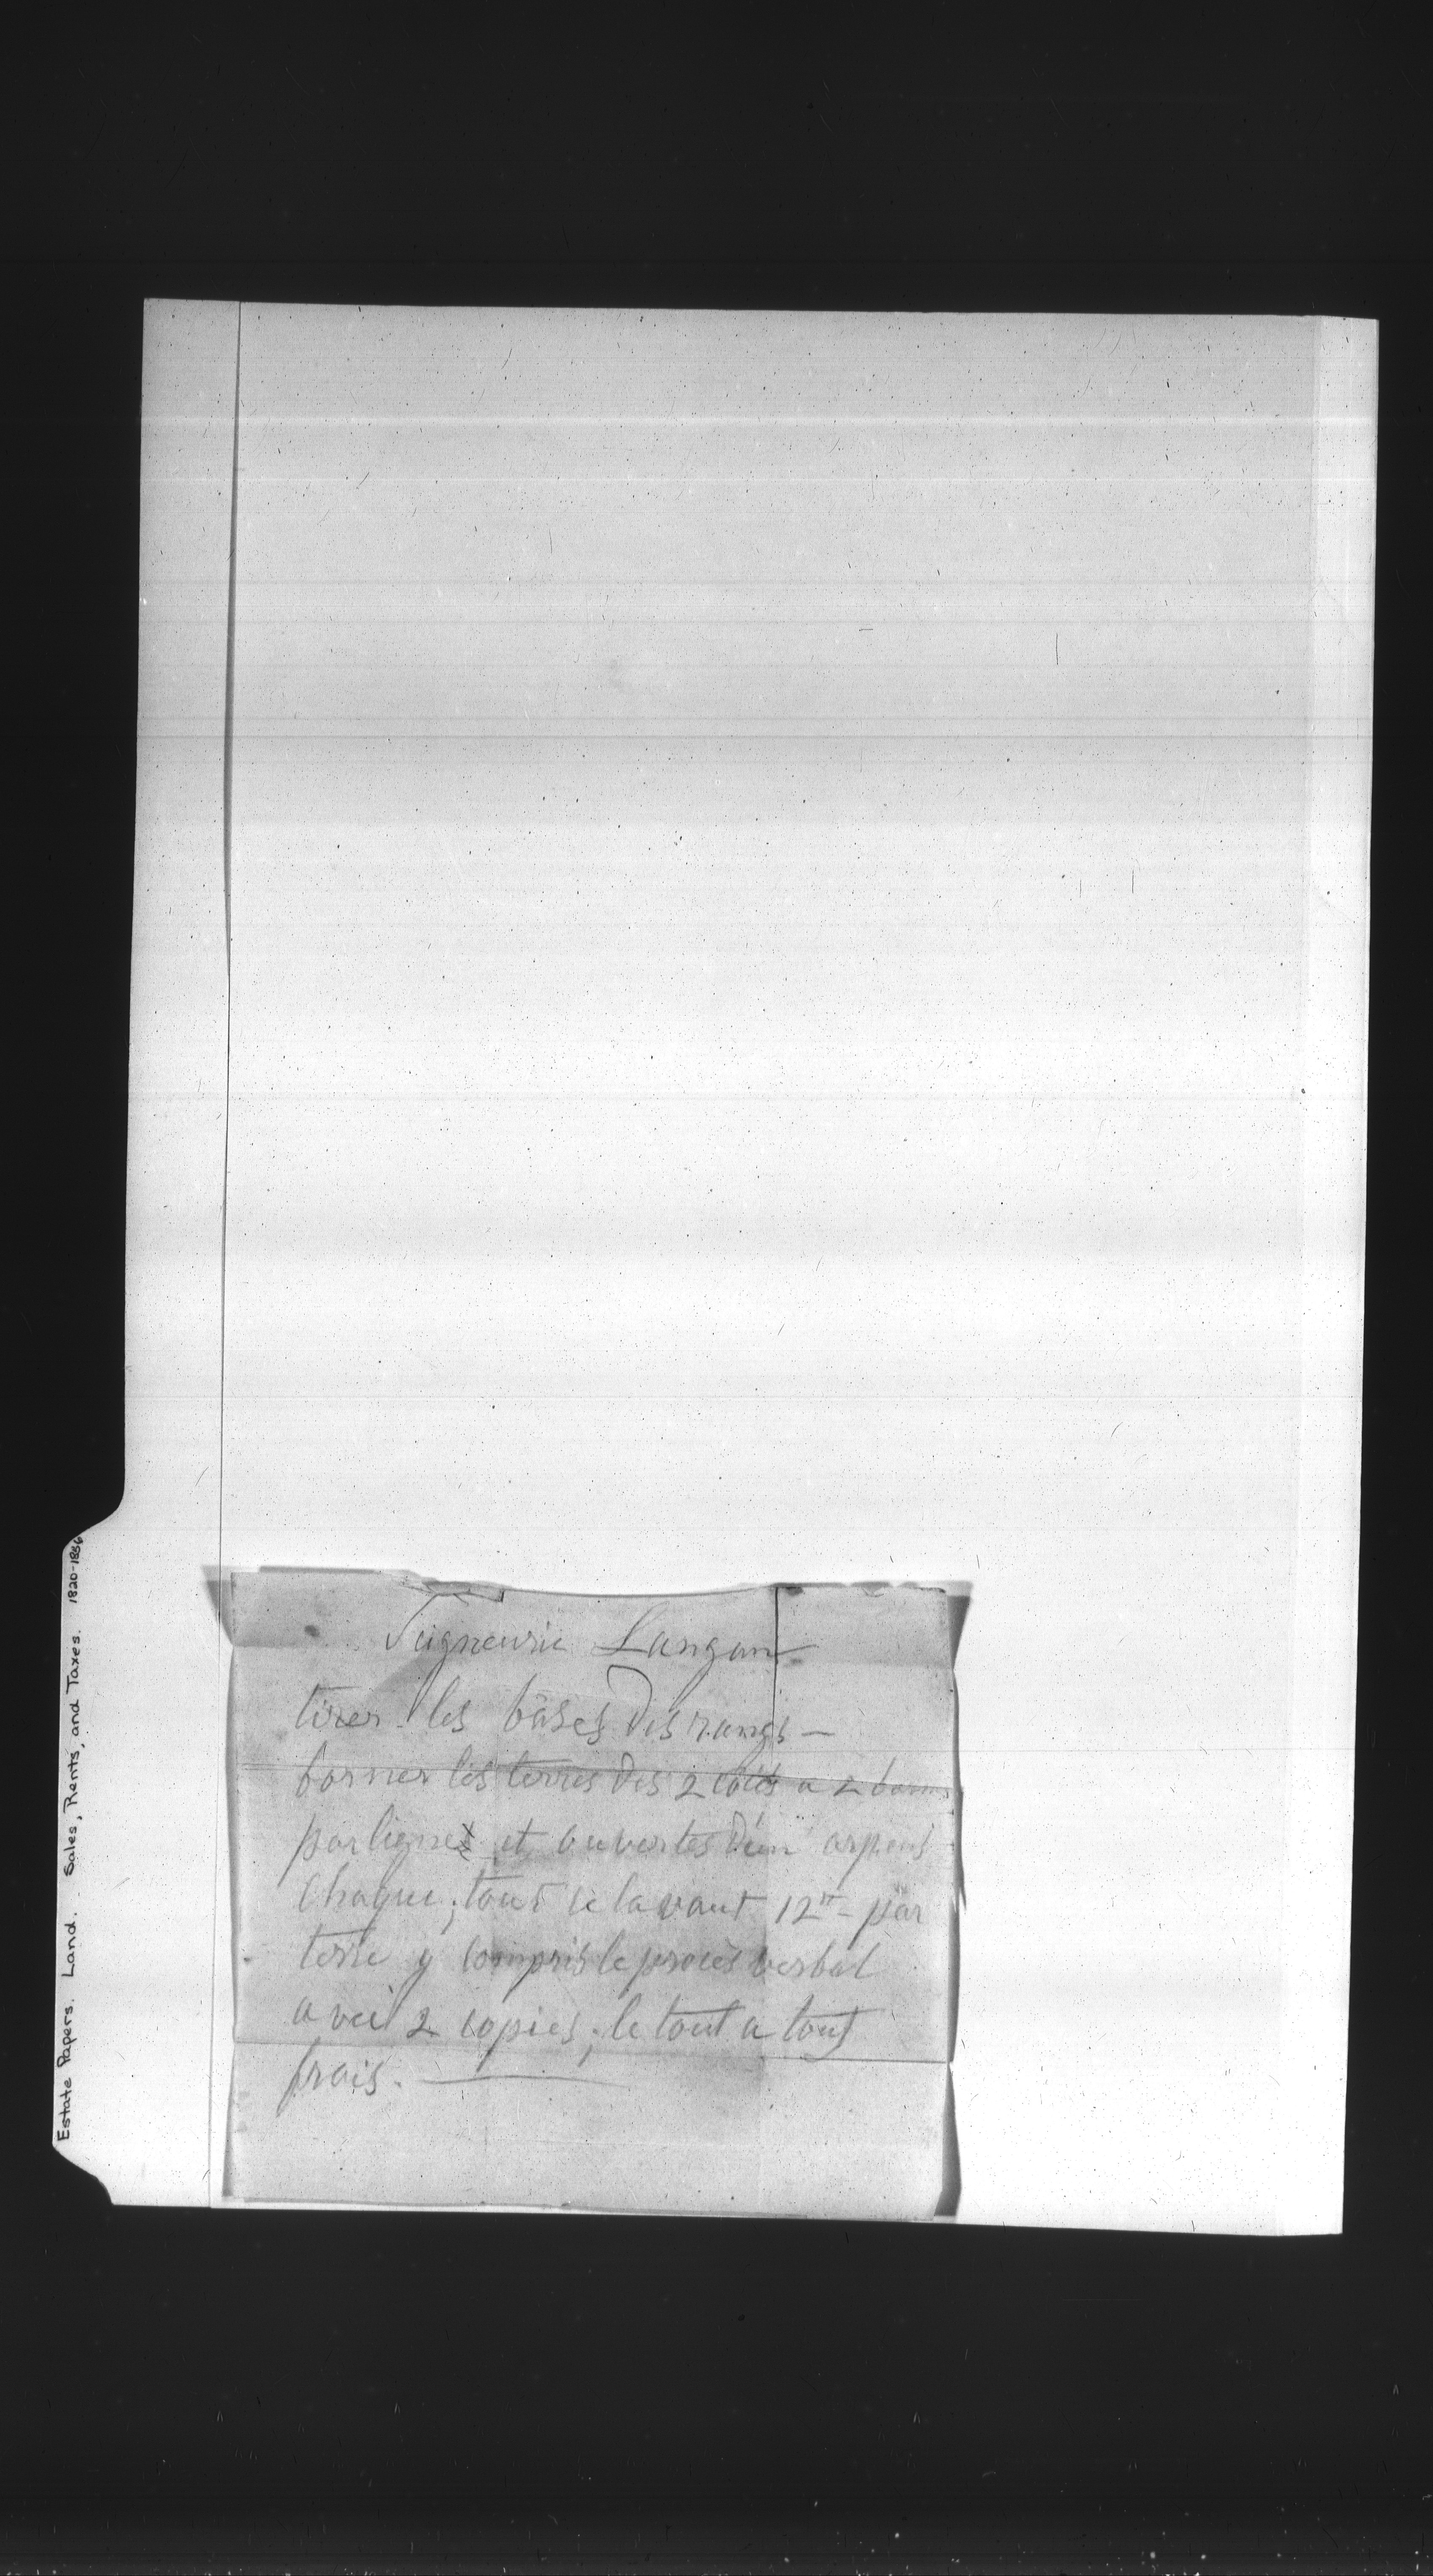 Estate Papers. Land. Sales, Rents, and Taxes. 1820-1836
Seigneurie Langan
tirer les bâses des rangs —
borner les terres des 2 cotés a 2 born
par lignes et ouvertes d'un arpent
chaque ; tout cela vaut 12tt - par
terre y compris le procès verbal
avec 2 copies ; le tout a tout
frais. —